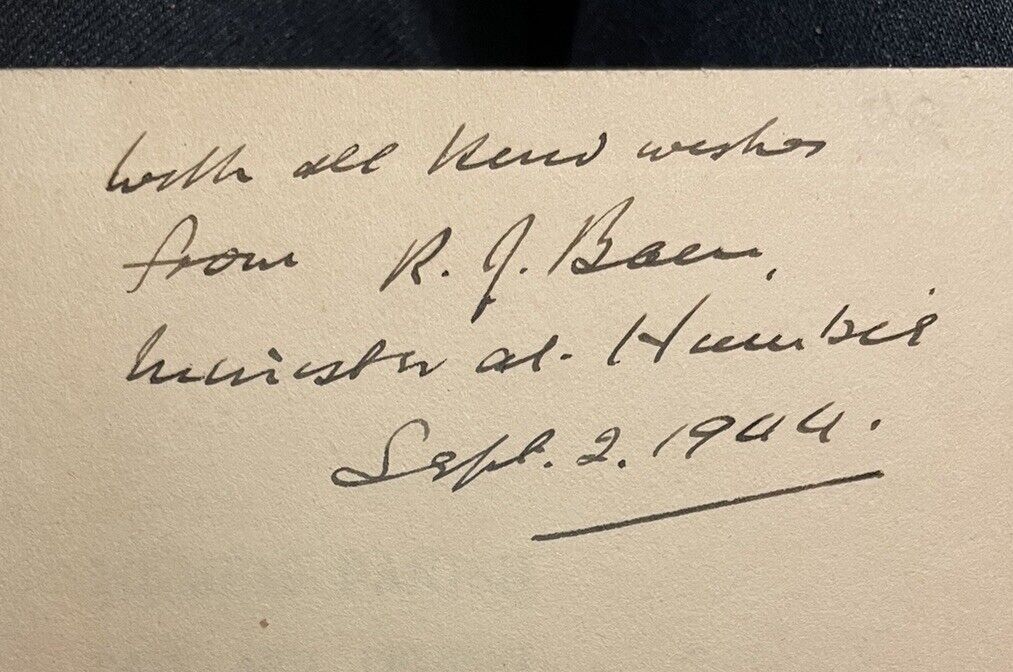 with all kind wishes
from R. J. Baen,
minister at. Humbie
Sept. 2. 1944.